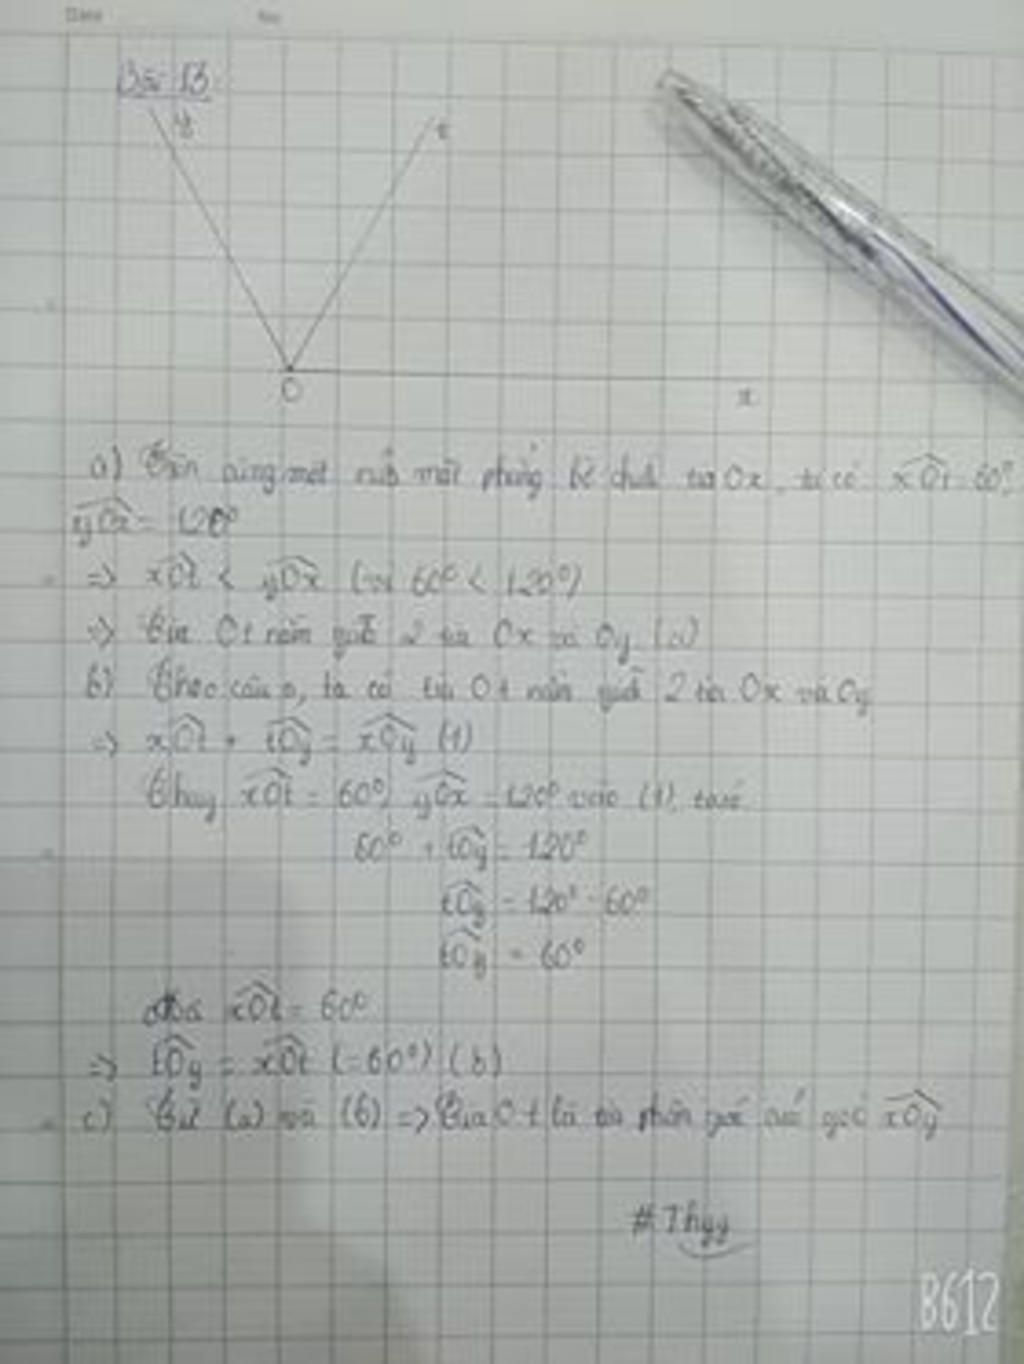 Date No.
Bài 13
y t
O x
a) Trên cùng một nửa mặt phẳng bờ chứa tia Ox, ta có xÔt = 60°,
yÔx = 120°
=> xÔt < yÔx (vì 60° < 120°)
=> Tia Ot nằm giữa 2 tia Ox và Oy (a)
b) Theo câu a, ta có tia Ot nằm giữa 2 tia Ox và Oy
=> xÔt + tÔy = xÔy (1)
Thay xÔt = 60°, yÔx = 120° vào (1), ta có
60° + tÔy = 120°
tÔy = 120° - 60°
tÔy = 60°
Mà xÔt = 60°
=> tÔy = xÔt (=60°) (b)
c) Từ (a) và (b) => Tia Ot là tia phân giác của góc xÔy
#Thyy
B612